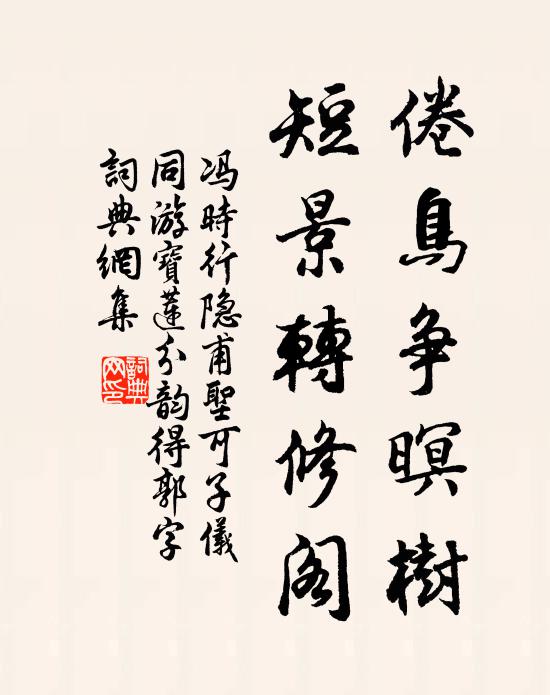 倦鳥争暝樹
短景轉修阁
冯時行隐甫聖可子儀
同游寶蓮分韵得郭字
詞典網集
詞典网印